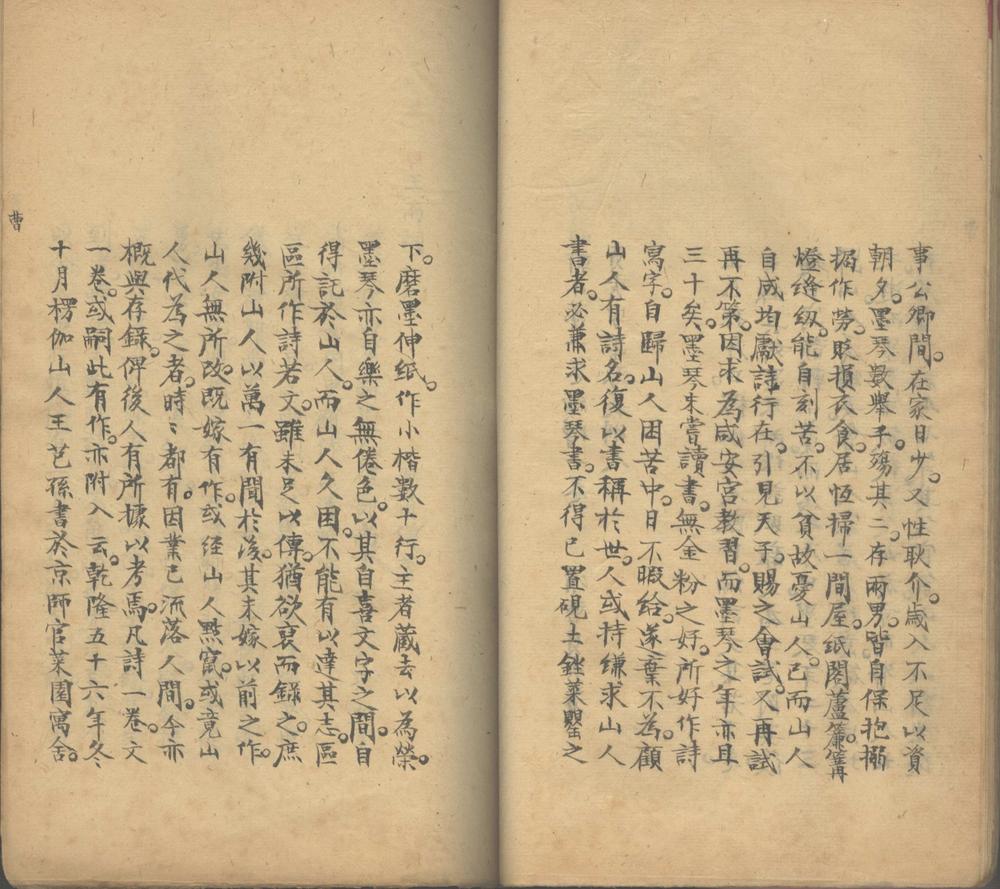 事公卿間。在家日少。又性耿介。歲入不足以資
朝夕。墨琴數舉子。殤其二。存兩男。皆自保抱搦
搊作勞。貶損衣食。居恆掃一間屋。紙閣蘆簾。篝
燈縫紉。能自刻苦。不以貧故憂山人。已而山人
自成均獻詩行在。引見天子。賜之會試。又再試
再不第。因求為咸安宮教習。而墨琴之年亦且
三十矣。墨琴未嘗讀書。無金粉之好。所好作詩
寫字。自歸山人困苦中。日不暇給。遂棄不為。顧
山人有詩名。復以書稱於世。人或持縑求山人
書者。必兼求墨琴書。不得已置硯土銼菜甖之
下。磨墨伸紙。作小楷數十行。主者藏去以為榮。
墨琴亦自樂之無倦色。以其自喜文字之間。自
得託於山人。而山人久困。不能有以達其志。區
區所作詩若文。雖未足以傳。猶欲裒而錄之。庶
幾附山人以萬一有聞於後。其未嫁以前之作。
山人無所改。既嫁有作。或經山人點竄。或竟山
人代為之者。時〻都有。因業已流落人間。今亦
概與存錄。俾後人有所據以考焉。凡詩一卷。文
一卷。或嗣此有作。亦附入云。乾隆五十六年冬
十月楞伽山人王芑孫書於京師官菜園寓舍。
曹